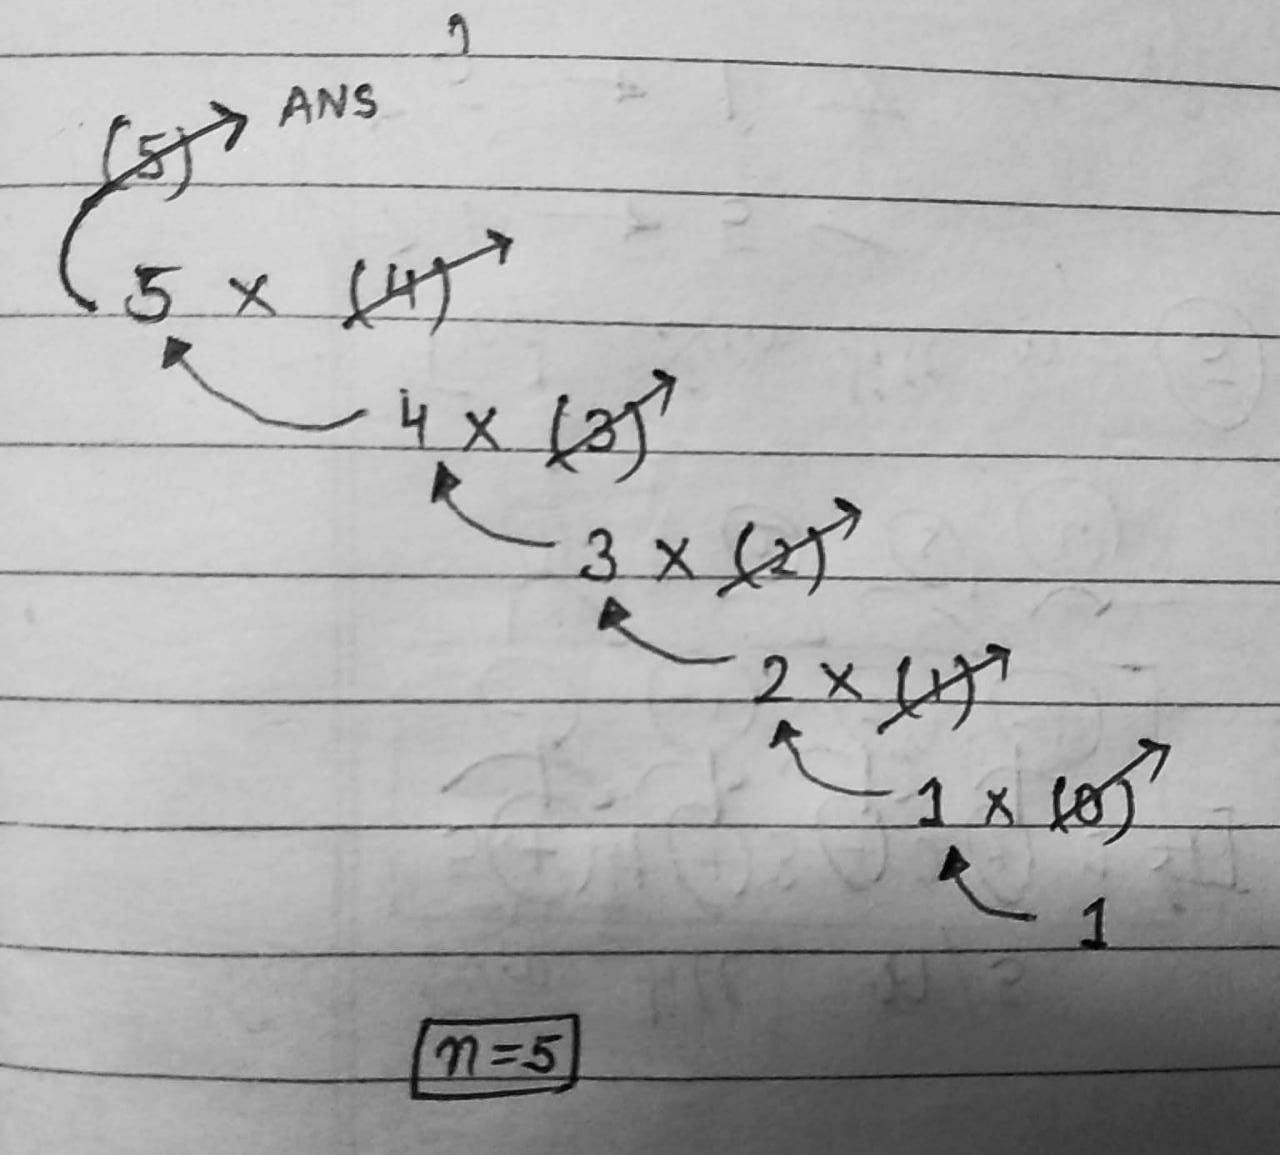 (5) → ANS
5 × (4)
4 × (3)
3 × (2)
2 × (1)
1 × (0)
1
n=5